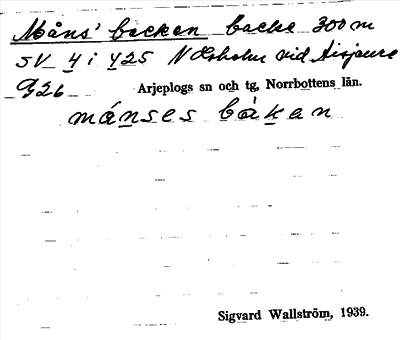 Måns' backen backe 300 m
SV 4 i 425 N Holsholm vid Aisjaure
G26 Arjeplogs sn och tg, Norrbottens län.
månses bàkan
Sigvard Wallström, 1939.